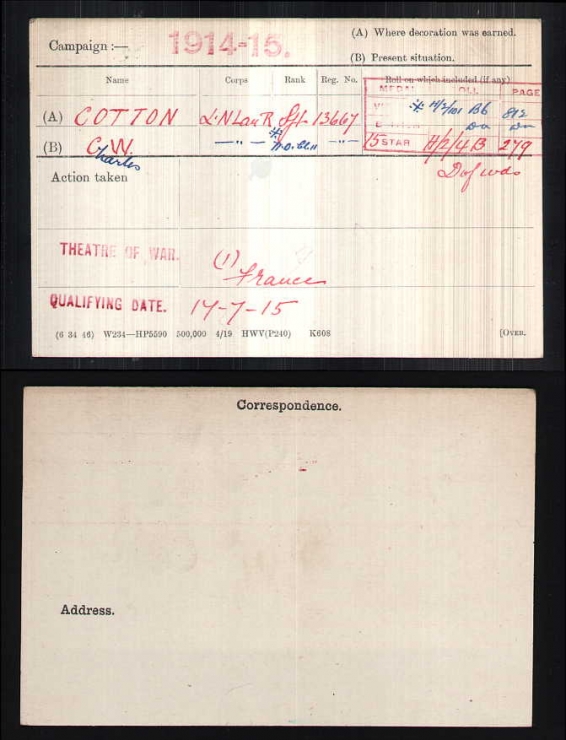 Campaign :— 1914-15. (A) Where decoration was earned.
(B) Present situation.
Name Corps Rank Reg. No. Roll on which included (if any)
MEDAL ROLL PAGE
(A) COTTON L.N.Lan.R. Sjt. 13667 H/2/101 B6 812
(B) C.W. —"— —"— Do Do
Charles 15 STAR H/2/4B 279
Action taken D of wds
THEATRE OF WAR. (1) France
QUALIFYING DATE. 17-7-15
(6 34 46) W234—HP5590 500,000 4/19 HWV(P240) K608 [OVER.
Correspondence.
Address.